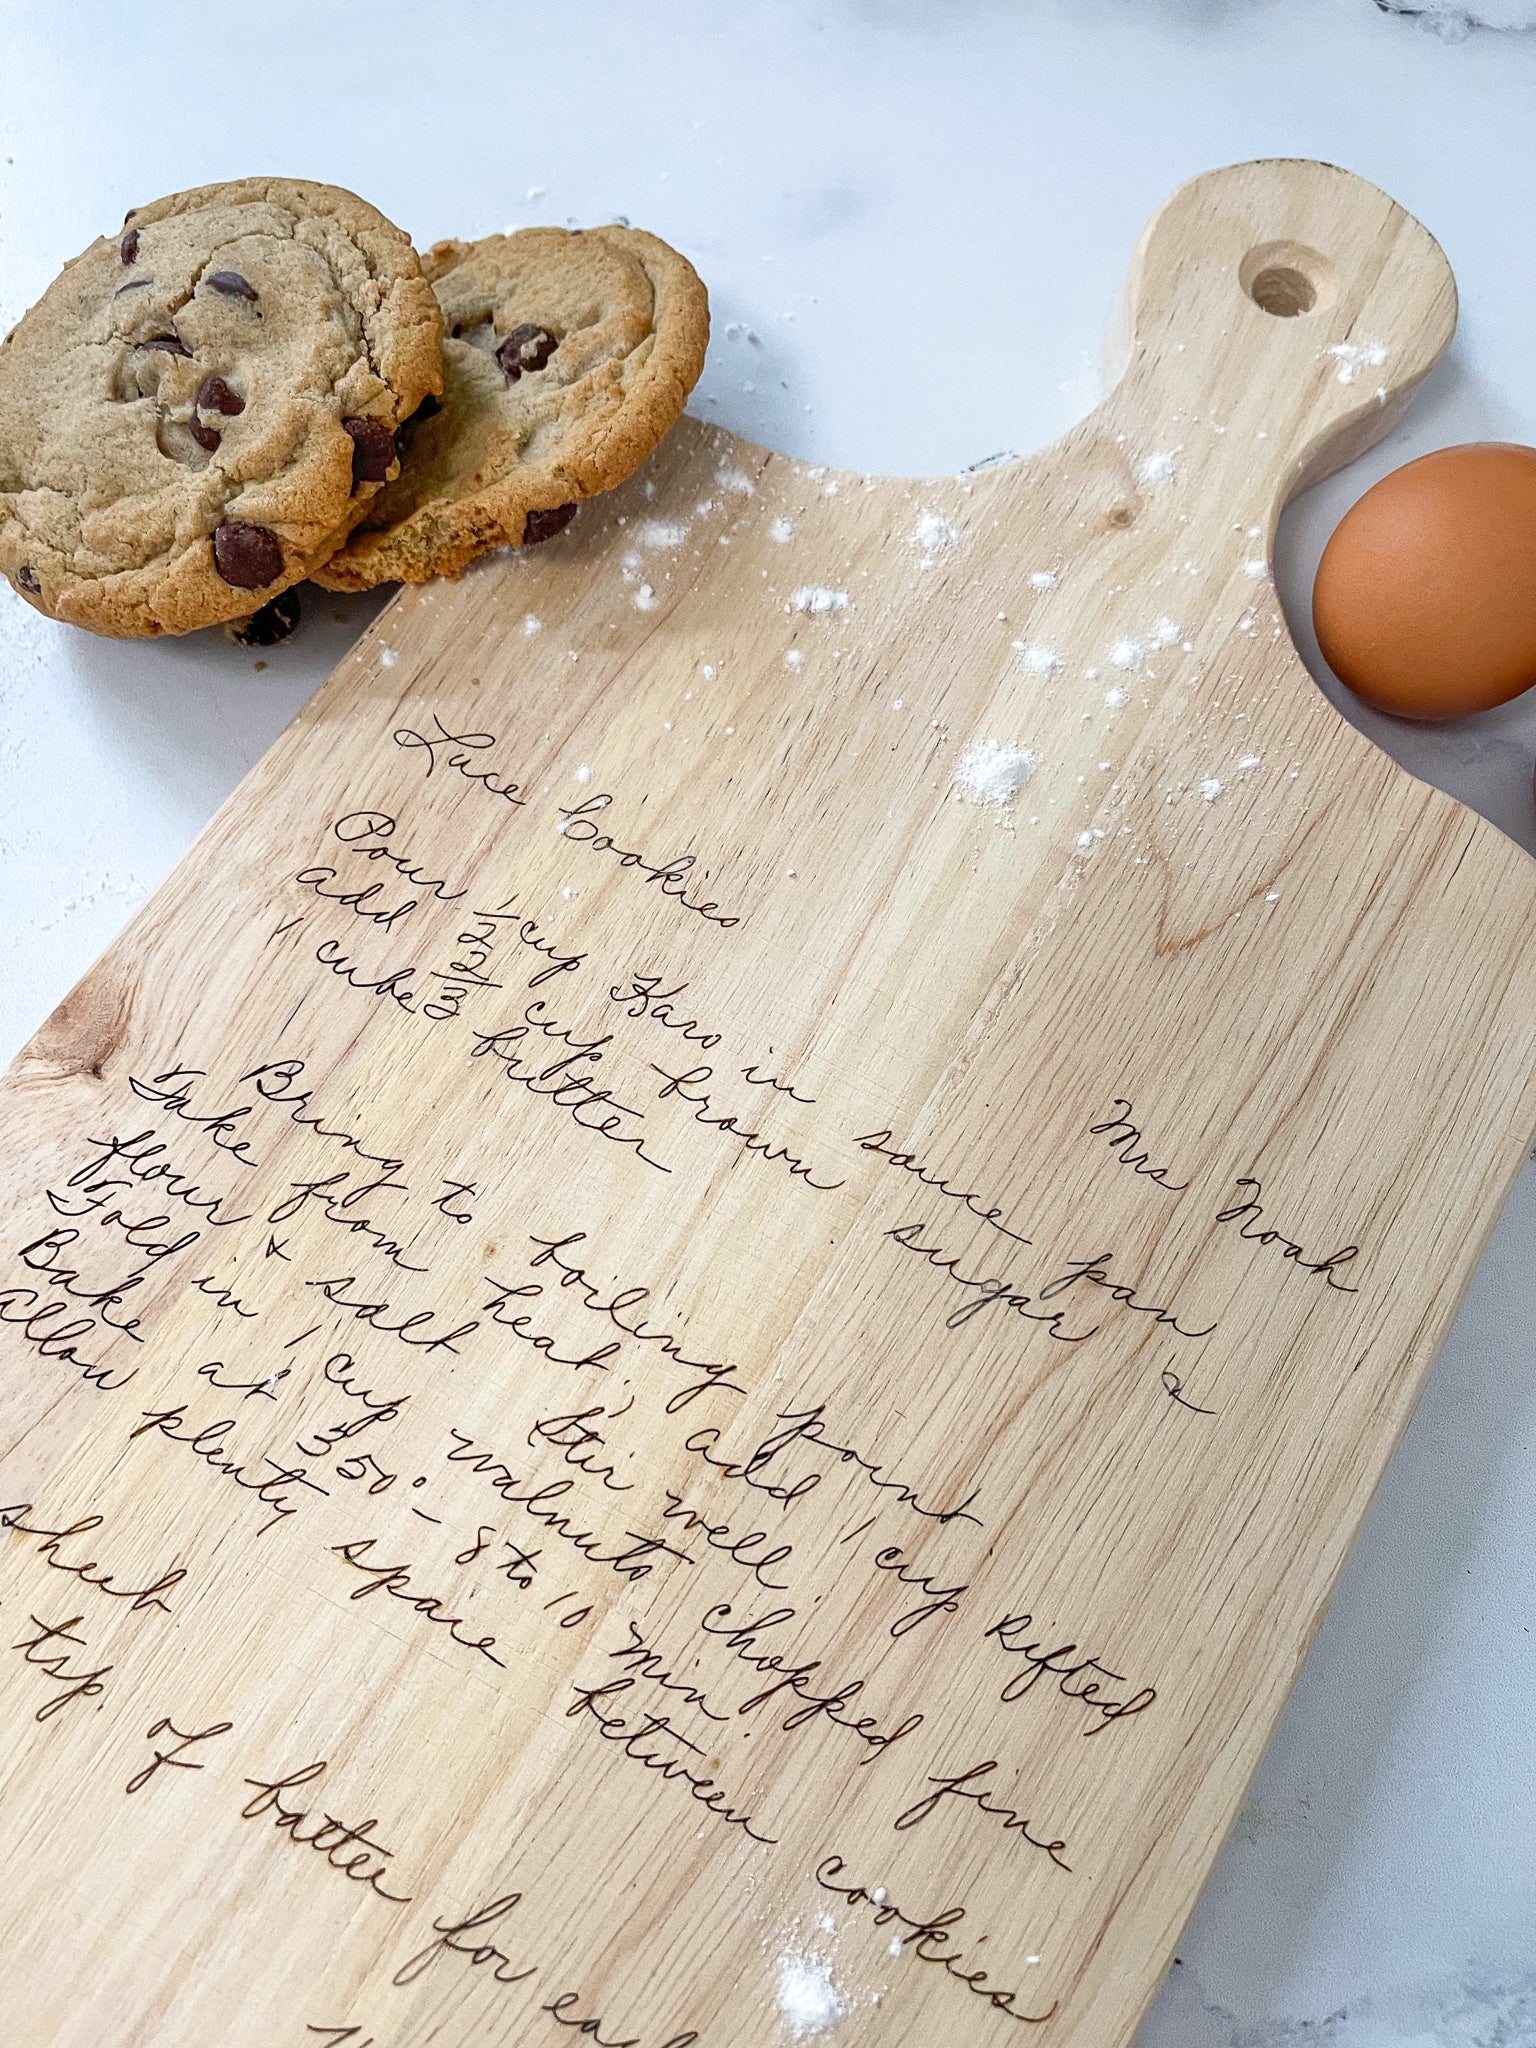 Lace Cookies Mrs Noah
Pour 1/2 cup Karo in sauce pan
add 2/3 cup brown sugar &
1 cube butter
Bring to boiling point
Take from heat, add 1 cup sifted
flour & salt. Stir well.
Fold in 1 cup walnuts chopped fine
Bake at 350° - 8 to 10 min.
allow plenty space between cookies
sheet
tsp. of batter for